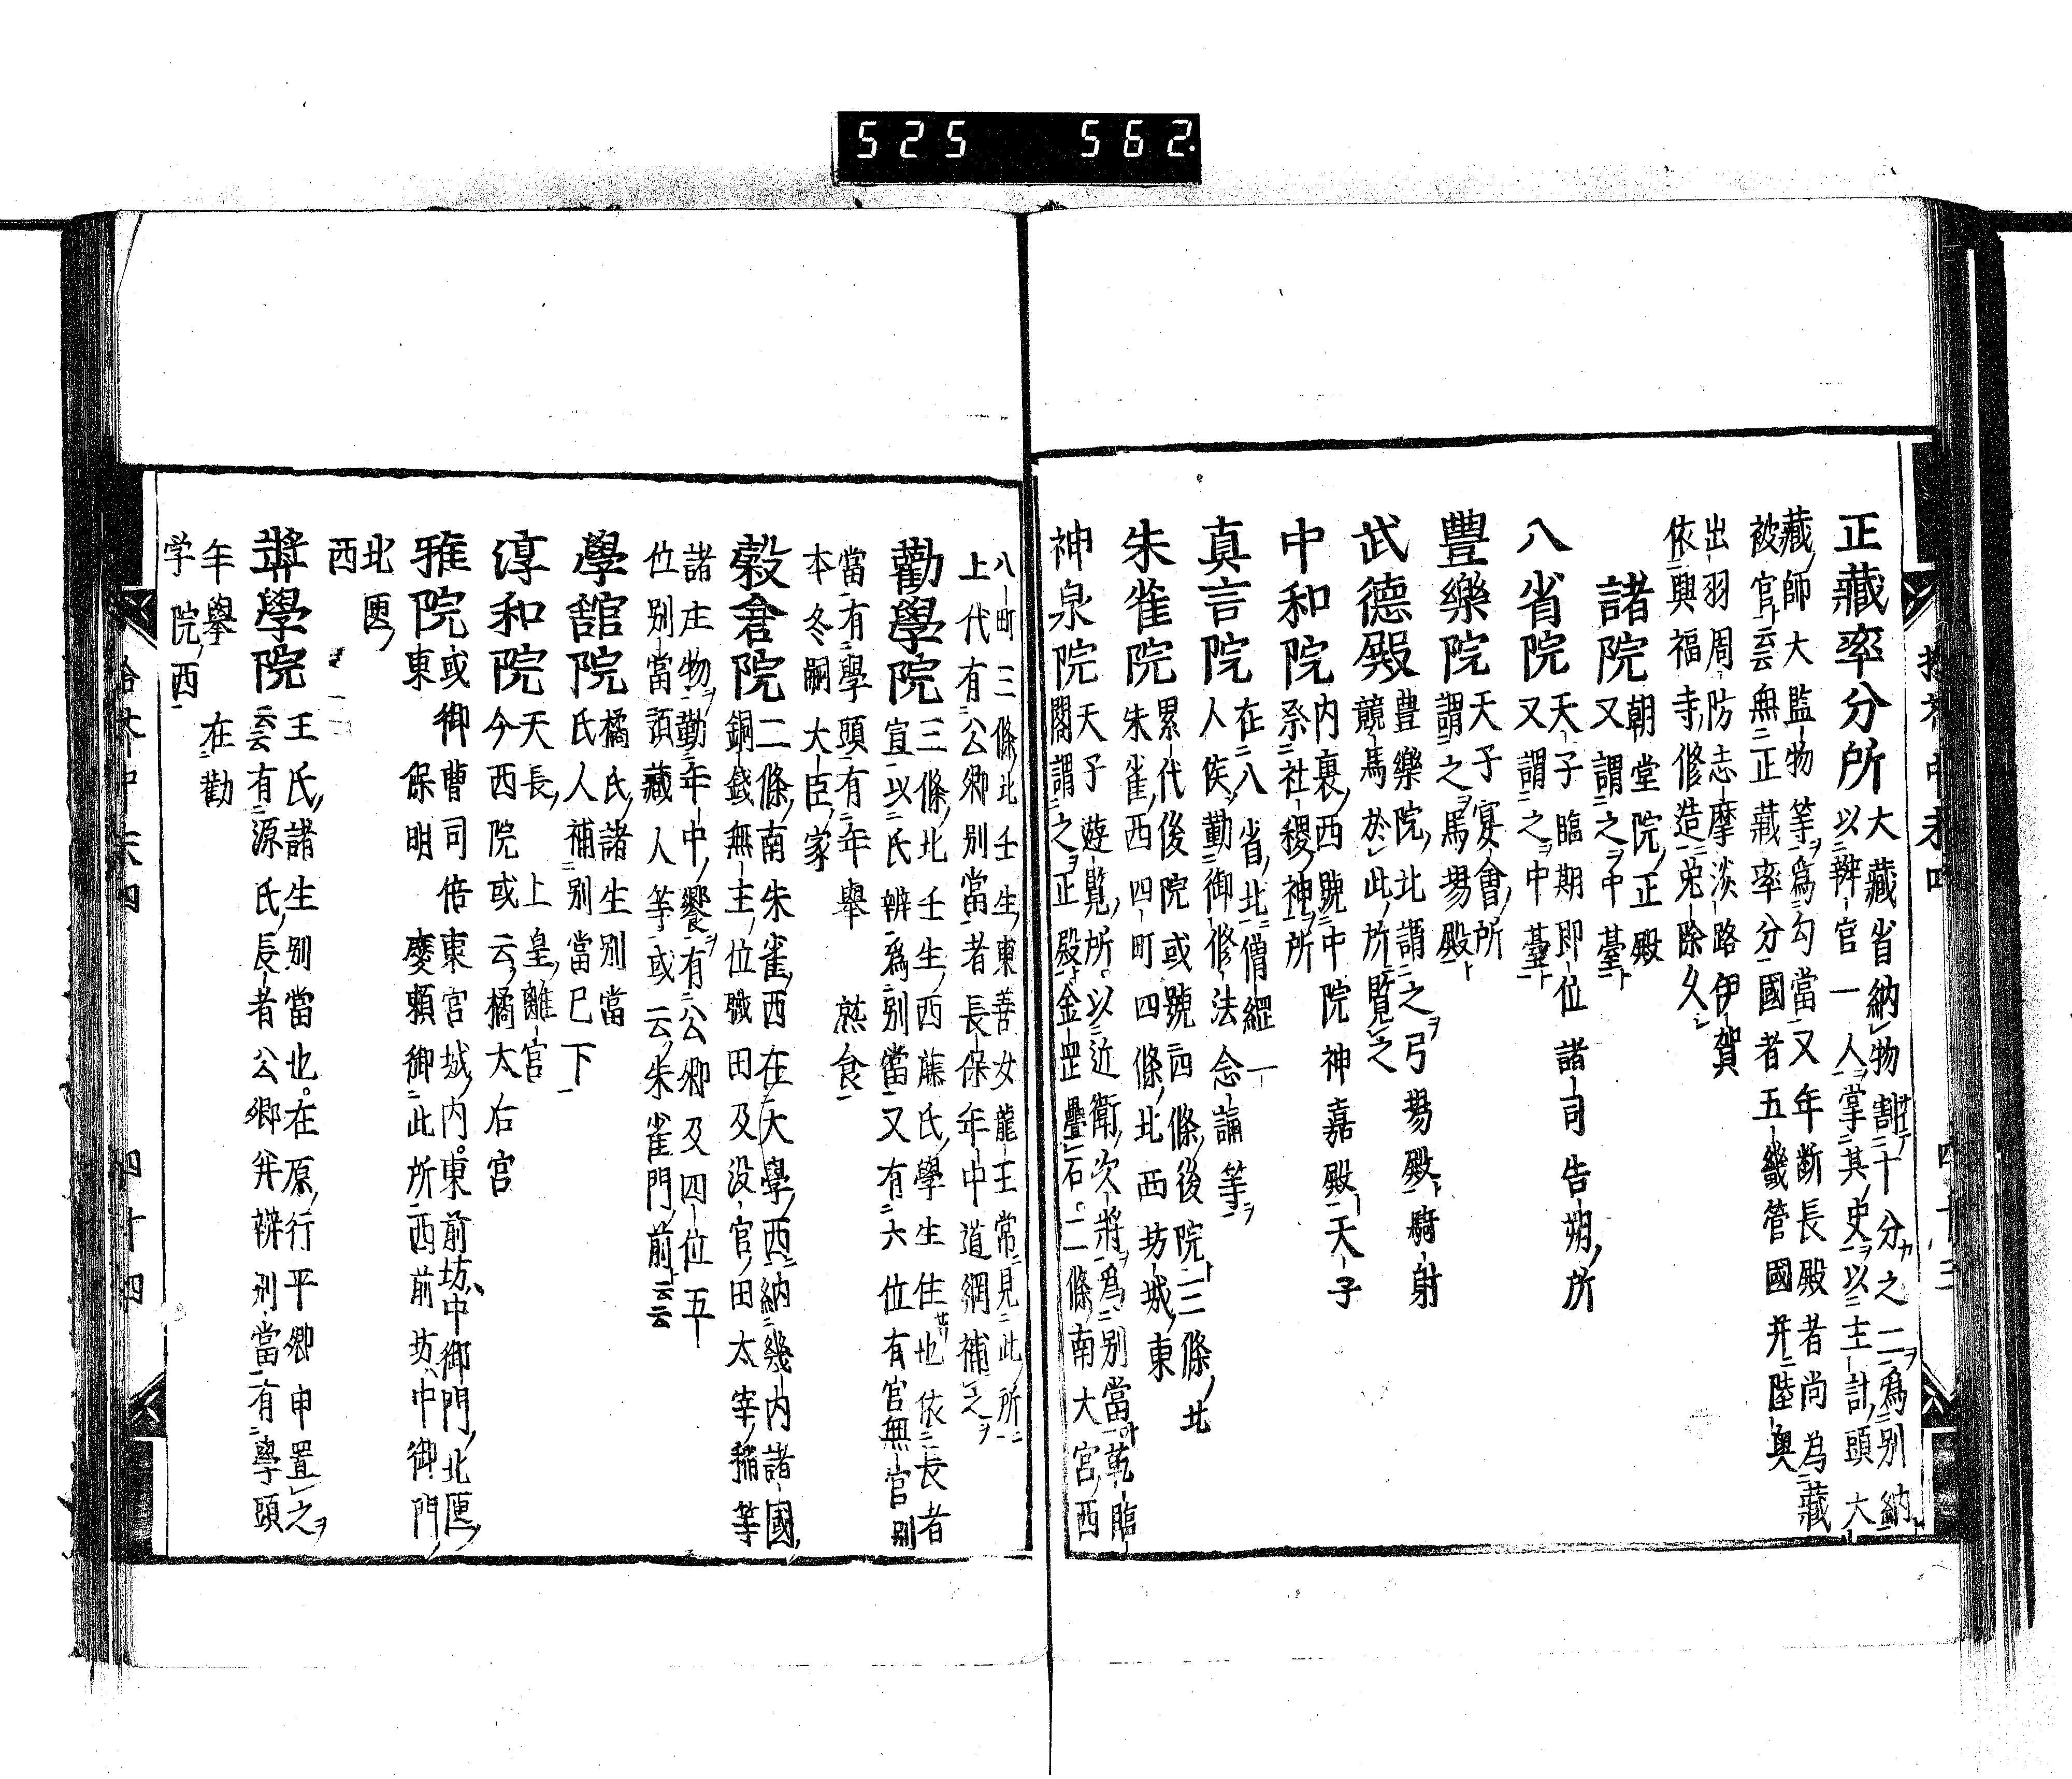 525 562.
正藏率分所
大藏省納物割二十分之二爲別納
以辨官一人掌其史以主計頭大
藏師大監物等爲勾當又年断長殿者尚為藏
被官云云無正藏率分國者五畿管國并陸奥
出羽周防志摩淡路伊賀
依興福寺修造免除久
諸院
朝堂院正殿
又謂之中臺
八省院
天子臨期即位諸司告朔所
又謂之中臺
豊樂院
天子宴會所
謂之馬場殿
武德殿
豊樂院北謂之弓場殿騎射
競馬於此所覽之
中和院
内裏西號中院神嘉殿天子
祭社稷神所
真言院
在八省北僧綱一
人候勤御修法念誦等
朱雀院
累代後院或號四條後院三條北
朱雀西四町四條北西坊城東
神泉院
天子遊覽所以近衛次將爲別當乾臨
閣謂之正殿金罡疊石二條南大宮西
八町三條北壬生東善女龍王常見此所
上代有公卿別當者長保年中道綱補之
勸學院
三條北壬生西藤氏學生住也依長者
宣以氏辨爲別當又有六位有官無官別
當有學頭有年舉 熊食
本冬嗣大臣家
穀倉院
二條南朱雀西在大學西納幾内諸國
銅錢無主位職田及没官田太宰稲等
諸庄物勤年中饗有公卿及四位五
位別當預藏人等或云朱雀門前云云
學舘院
橘氏諸生別當
氏人補別當巳下
淳和院
天長上皇離宮
今西院或云橘太后宮
雅院
或御曹司 東宮城内東前坊中御門北匣
東 保明 慶頼御此所西前坊中御門
北匣
西
弉學院
王氏諸生別當也在原行平卿申置之
云云有源氏長者公卿并辨別當有學頭
年擧 在勸
学院西
四十四